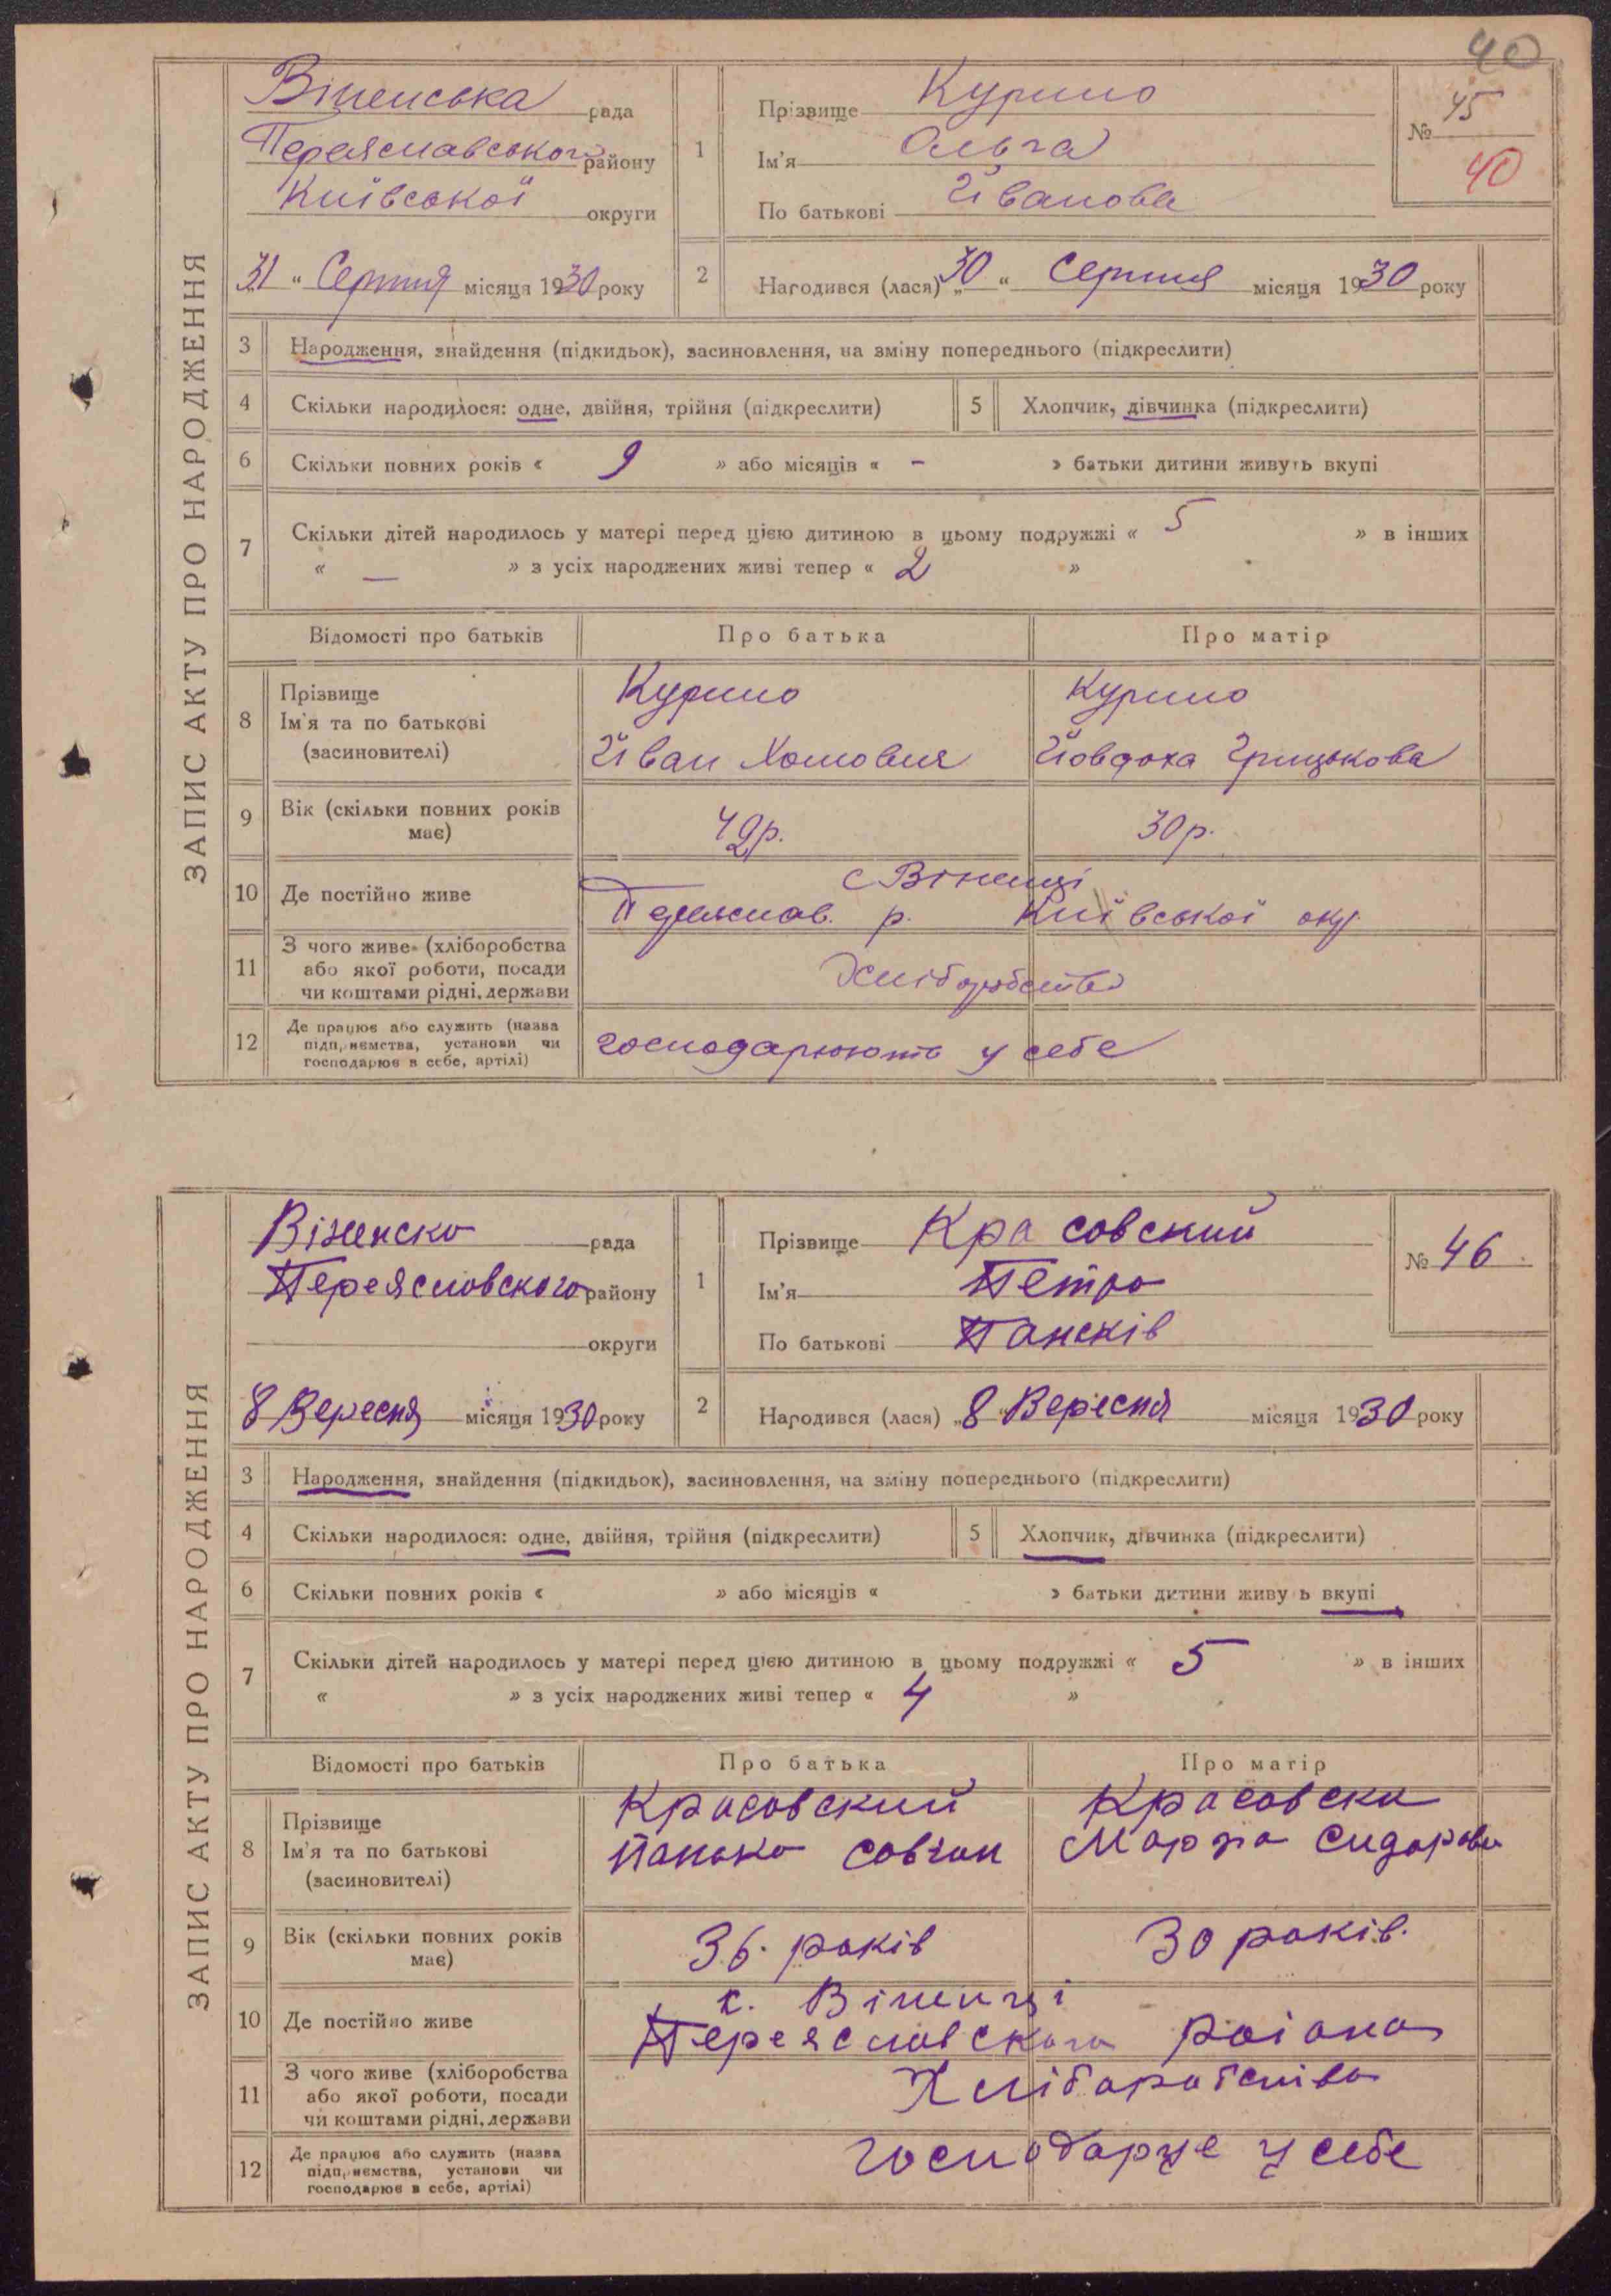 40
ЗАПИС АКТУ ПРО НАРОДЖЕННЯ
Віненська рада
Переяславського району
Київської округи
„31“ Серпня місяця 1930 року
1
Прізвище Курило
Ім'я Ольга
По батькові Йванова
№ 45
40
2
Народився (лася) „30“ Серпня місяця 1930 року
3 Народження, знайдення (підкидьок), засиновлення, на зміну попереднього (підкреслити)
4 Скільки народилося: одне, двійня, трійня (підкреслити)
5 Хлопчик, дівчинка (підкреслити)
6 Скільки повних років « 9 » або місяців « - » батьки дитини живуть вкупі
7 Скільки дітей народилось у матері перед цією дитиною в цьому подружжі « 5 » в інших
« — » з усіх народжених живі тепер « 2 »
Відомості про батьків Про батька Про матір
8 Прізвище
Ім'я та по батькові
(засиновителі)
Курило
Йван Хомовия
Курило
Йовдоха Грицькова
9 Вік (скільки повних років
має)
42р.
30р.
10 Де постійно живе
с Віненці
Переяслав. р. Київської окр
11 З чого живе (хліборобства
або якої роботи, посади
чи коштами рідні, держави
Хліборобство
12 Де працює або служить (назва
підприємства, установи чи
господарює в себе, артілі)
господарюють у себе
ЗАПИС АКТУ ПРО НАРОДЖЕННЯ
Віненско рада
Переясловского району
округи
8 Вересня місяця 1930 року
1
Прізвище Красовский
Ім'я Петро
По батькові Пансків
№ 46.
2
Народився (лася) „8“ Вересня місяця 1930 року
3 Народження, знайдення (підкидьок), засиновлення, на зміну попереднього (підкреслити)
4 Скільки народилося: одне, двійня, трійня (підкреслити)
5 Хлопчик, дівчинка (підкреслити)
6 Скільки повних років « » або місяців « » батьки дитини живу ь вкупі
7 Скільки дітей народилось у матері перед цією дитиною в цьому подружжі « 5 » в інших
« » з усіх народжених живі тепер « 4 »
Відомості про батьків Про батька Про матір
8 Прізвище
Ім'я та по батькові
(засиновителі)
Красовский
Панько Совчин
Красовска
Марфа Сидорова
9 Вік (скільки повних років
має)
36. років
30 років.
10 Де постійно живе
с. Віненці
Переясловского раіона
11 З чого живе (хліборобства
або якої роботи, посади
чи коштами рідні, держави
Хліборобства
12 Де працює або служить (назва
підприємства, установи чи
господарює в себе, артілі)
господарує у себе